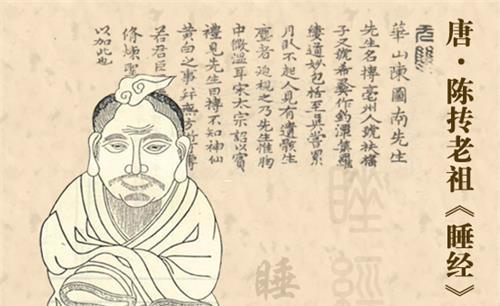 唐·陈抟老祖《睡经》
華山陳圖南先生
先生名摶亳州人號扶搖
子又號希夷作釣潭集羅
縷道妙包括至真嘗累
月臥不起人見有遺骸生
塵者迫視之乃先生惟胸
中微溫耳宋太宗詔以賓
禮見先生曰摶不知神仙
黃白之事
若君臣
修煉
以加此也
睡經
睡